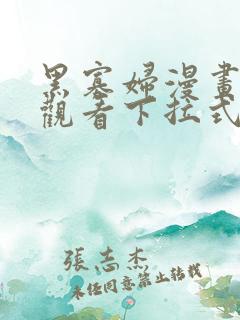 黑寡婦漫畫
觀看下拉式
張志杰
未經同意禁止轉載